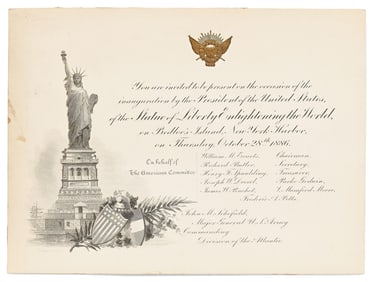 You are invited to be present on the occasion of the
inauguration by the President of the United States,
of the Statue of Liberty Enlightening the World,
on Bedloe's Island, New York Harbor,
on Thursday, October 28th 1886.
On behalf of
The American Committee
William M. Evarts, Chairman
Richard Butler, Secretary
Henry F. Spaulding, Treasurer
Joseph W. Drexel, Parke Godwin,
James W. Pinchot, V. Mumford Moore,
Frederic A. Potts.
John M. Schofield,
Major General U.S. Army
Commanding
Division of the Atlantic